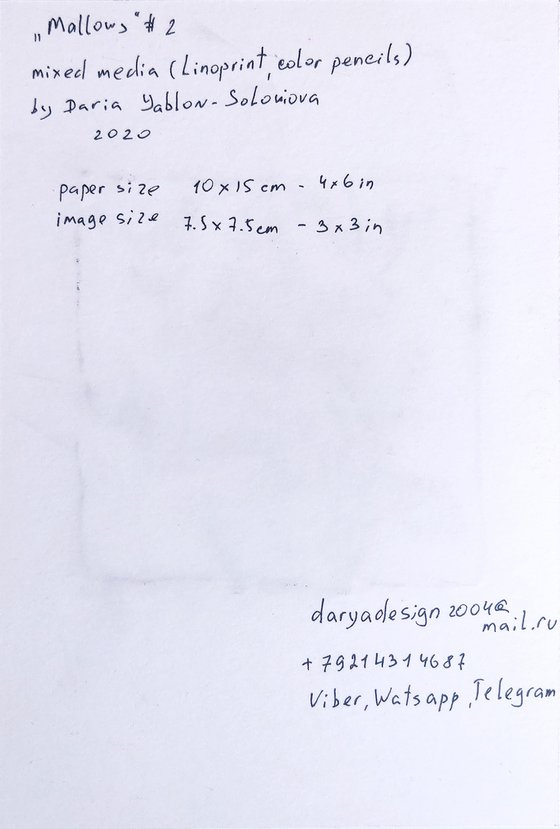 „Mallows“ # 2
mixed media (Linoprint, color pencils)
by Daria Yablon-Soloviova
2020
paper size 10 x 15 cm - 4 x 6 in
image size 7.5 x 7.5 cm - 3 x 3 in
daryadesign2004@
mail.ru
+79214314687
Viber, Watsapp, Telegram